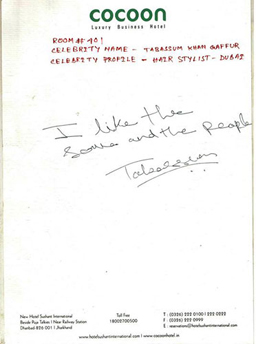 cocoon
Luxury Business Hotel
ROOM # 401
CELEBRITY NAME - TABASSUM KHAN GAFFUR
CELEBRITY PROFILE - HAIR STYLIST - DUBAI
I like the
and the People
Tabassum
New Hotel Sushant International
Beside Puja Talkies I Near Railway Station
Dhanbad 826 001 I Jharkhand
Toll Free
18002700500
T : (0326) 222 0100 I 222 0222
F : (0326) 222 0999
E : reservations@hotelsushantinternational.com
www.hotelsushantinternational.com I www.cocoonhotel.in